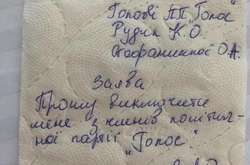 Голові ПП Голос
Рудик К.О.
Стефанишиної О.А.
Заява
Прошу виключити
мене з членів політич-
ної партії "Голос".